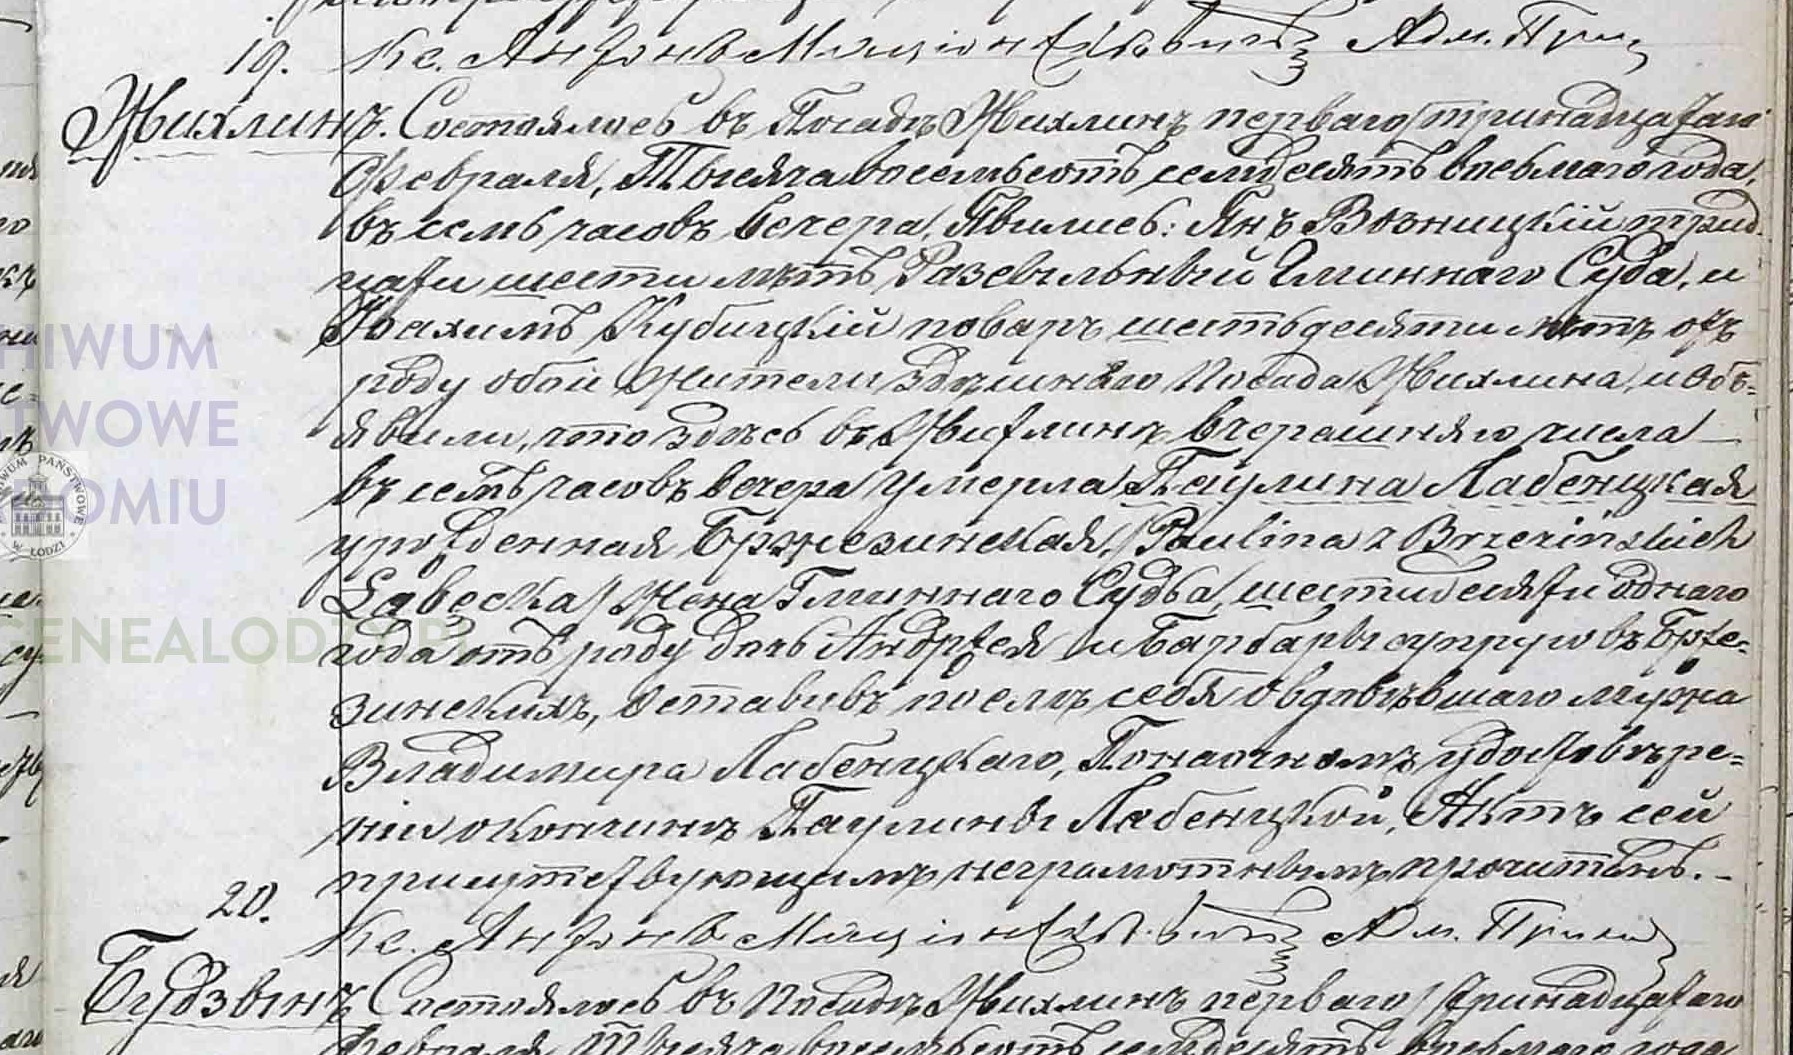 19. Кс. Антонъ Адм. Прих.
Жихлинъ. Состоялось въ Посадѣ Жихлинѣ перваго/тринадцатаго
Февраля, Тысяча восемьсотъ семдесятъ восьмаго года,
въ семь часовъ вечера, Явились: Янъ Возницкій трид
цати шести лѣтъ Разсыльный Гминнаго Суда, и
Іоахимъ Кубицкій поваръ шестьдесяти лѣтъ отъ
роду обои жители здѣшнаго Посада Жихлина, и объ=
явили, что здѣсь въ Жихлинѣ вчерашняго числа
въ семь часовъ вечера умерла Паулина Лабенцкая
урожденная Бржезинская, /Paulina z Brzezinskich
Łabęcka/ Жена Гминнаго Судьи, шестидесяти одного
года отъ роду дочь Андржея и Барбары супруговъ Брже=
зинскихъ, оставивъ послѣ себя овдовѣвшаго мужа
Владимира Лабенцкаго, По наочномъ удостовѣре=
ніи о кончинѣ Паулины Лабенцкой, Актъ сей
присутствующимъ неграмотнымъ прочитанъ. –
20. Кс. Антонъ Адм. Прих.
Будзынъ Состоялось въ Посадѣ Жихлинѣ перваго/тринадцатаго
Февраля Тысяча восемьсотъ семьдесятъ восьмаго года
ARCHIWUM
PAŃSTWOWE
W ŁODZI
GENEALODZY.PL